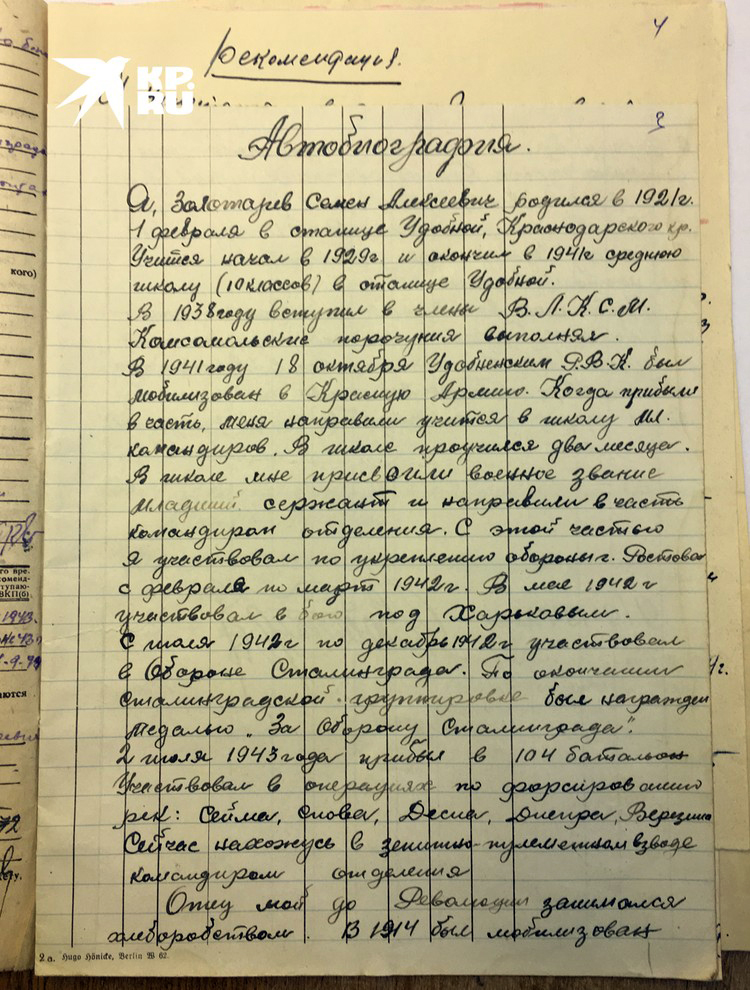 4
Рекомендация.
KP.
RU
3
Автобиография.
Я, Золотарев Семен Алексеевич родился в 1921г.
1 февраля в станице Удобной, Краснодарского кр.
Учится начал в 1929г и окончил в 1941г среднюю
школу (10 классов) в станице Удобной.
В 1938 году вступил в члены В.Л.К.С.М.
Комсомольские поручения выполнял.
В 1941 году 18 октября Удобненским Р.В.К. был
мобилизован в Красную Армию. Когда прибыли
в часть, меня направили учится в школу мл.
командиров. В школе проучился два месяца.
В школе мне присвоили военное звание
младший сержант и направили в часть
командиром отделения. С этой частью
я участвовал по укреплению обороны г. Ростова
с февраля по март 1942г. В мае 1942г
участвовал в бою под Харьковым.
С июля 1942г по декабрь 1942г участвовал
в Обороне Сталинграда. По окончании
сталинградской группировке был награжден
медалью „За Оборону Сталинграда".
2 июля 1943 года прибыл в 104 батальон
Участвовал в операциях по форсированию
рек: Сейма, Снова, Десна, Днепра, Березина
Сейчас нахожусь в зенитно-пулеметном взводе
командиром отделения
Отец мой до Революции занимался
хлеборобством. В 1914 был мобилизован
2 а. Hugo Hönicke, Berlin W 62.
кого)
1943.
72